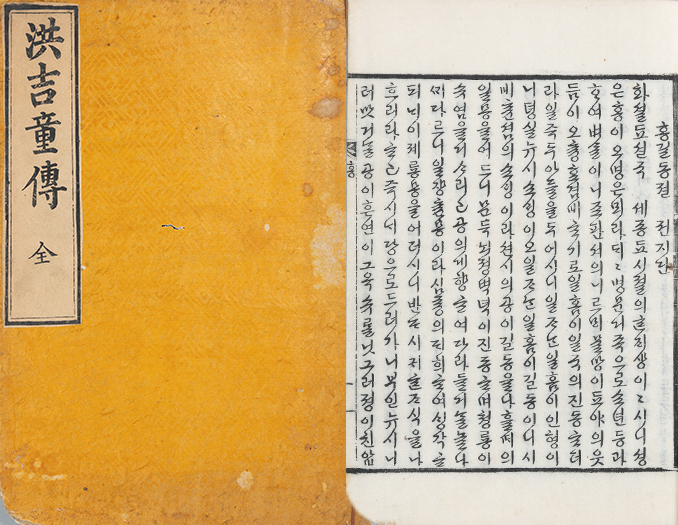 洪吉童傳 全
홍길동젼 권지단
화셜 됴션국 셰종됴 시졀의 ᄒᆞᆫ ᄌᆡ샹이 이시니 셩
은 홍이오 명은 뫼라 ᄃᆡᄃᆡ 명문거족으로 쇼년 등과
ᄒᆞ여 벼ᄉᆞᆯ이 니조판셔의 니르ᄆᆡ 물망이 됴야의 읏
듬이오 츙효겸비ᄒᆞ기로 일홈이 일국의 진동ᄒᆞ더
라 일즉 두 아들을 두어시니 일ᄌᆞᄂᆞᆫ 일홈이 인형이
니 뎡실 뉴시 쇼ᄉᆡᆼ이오 일ᄌᆞᄂᆞᆫ 일홈이 길동이니 시
비 츈셤의 쇼ᄉᆡᆼ이라 션시의 공이 길동을 나흘 ᄯᆡ의
일몽을 어드니 문득 뇌졍벽녁이 진동ᄒᆞ며 쳥룡이
슈염을 거ᄉᆞ리고 공의게 향ᄒᆞ여 다라들거ᄂᆞᆯ 놀나
ᄭᆡ다르니 일쟝츈몽이라 심즁의 ᄃᆡ희ᄒᆞ여 ᄉᆡᆼ각ᄒᆞ
되 ᄂᆡ 이제 룡몽을 어더시니 반ᄃᆞ시 귀ᄒᆞᆫ ᄌᆞ식을 나
흐리라 ᄒᆞ고 즉시 ᄂᆡ당으로 드러가니 부인 뉴시 니
러 맛거ᄂᆞᆯ 공이 흔연이 그 옥슈를 닛그러 졍이 친압
홍